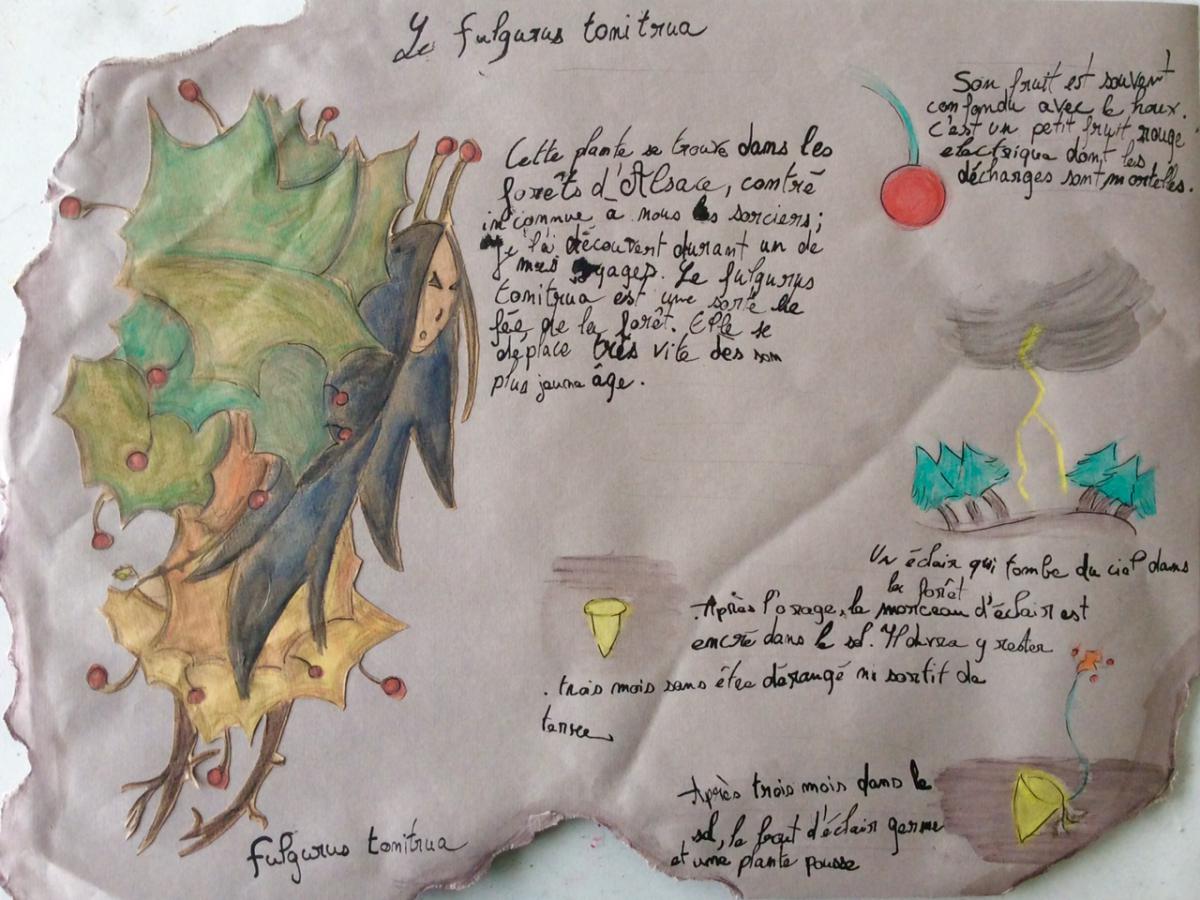 Le fulgurus tonitrua
Cette plante se trouve dans les
forêts d'Alsace, contré
inconnue à nous les sorciers;
je l'ai découvert durant un de
mes voyages. Le fulgurus
tonitrua est une sorte de
fée de la forêt. Elle se
déplace très vite dès son
plus jeune âge.
Son fruit est souvent
confondu avec le houx.
C'est un petit fruit rouge
electrique dont les
décharges sont mortelles.
Un éclair qui tombe du ciel dans
la forêt
Après l'orage, le morceau d'éclair est
encré dans le sol. Il devra y rester
trois mois sans être dérangé ni sortit de
terre
Après trois mois dans le
sol, le bout d'éclair germe
et une plante pousse
fulgurus tonitrua